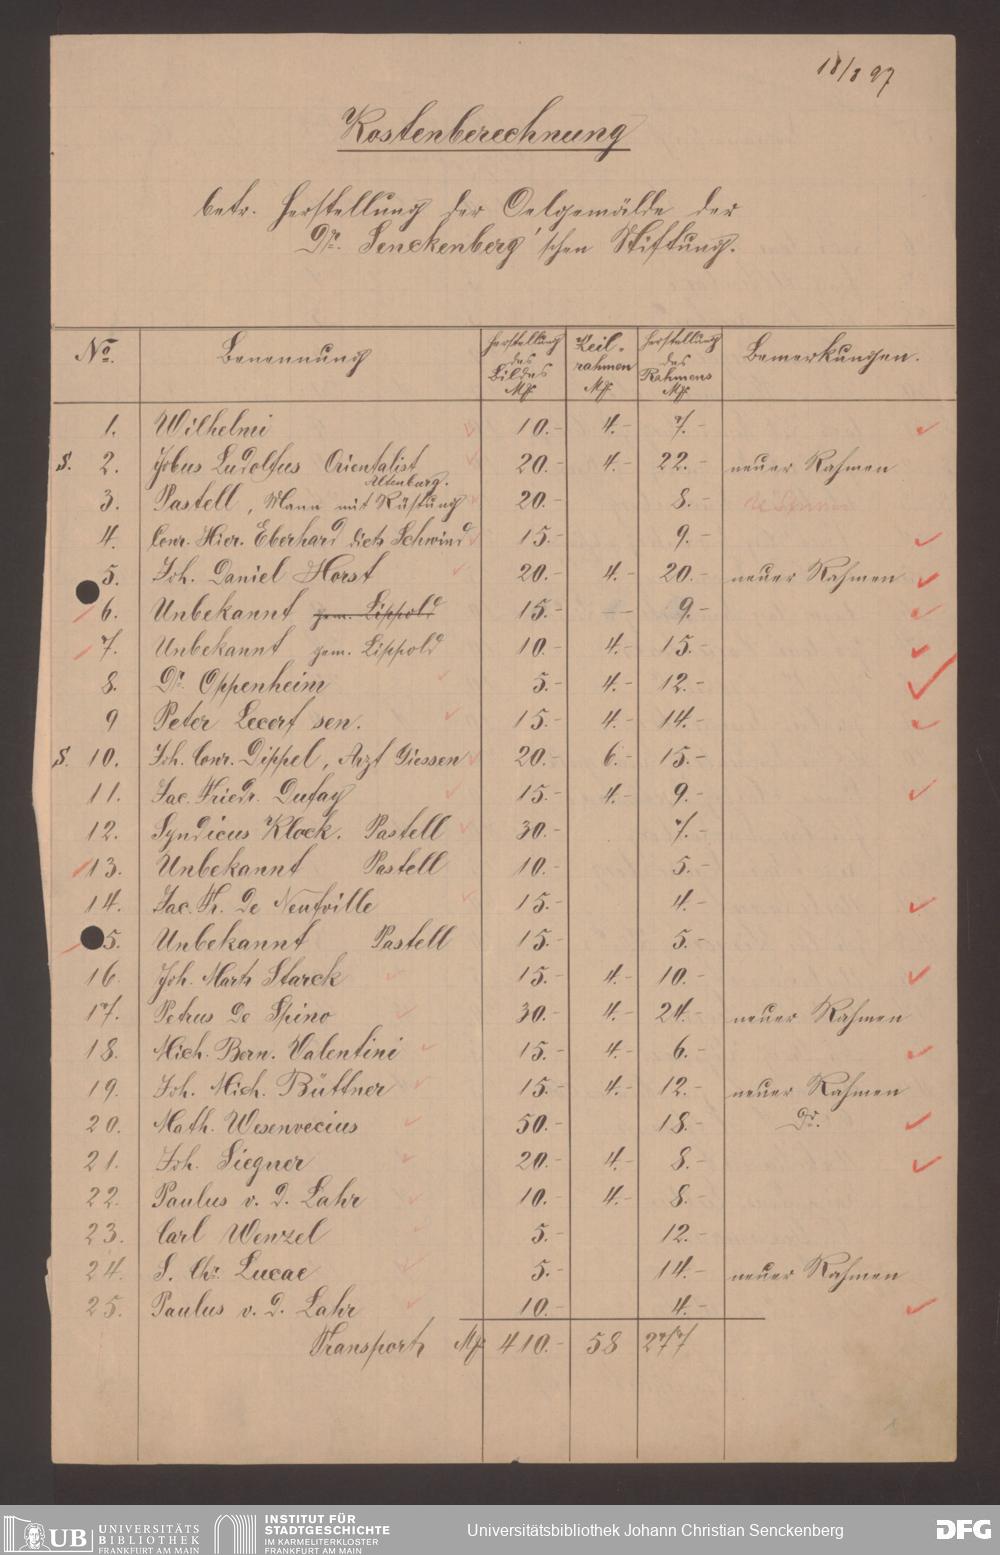 18/3 97
Kostenberechnung
betr. Herstellung der Oelgemälde der
Dr. Senckenberg'schen Stiftung.
No. Benennung Herstellung des Bildes M. Keil-rahmen M. Herstellung des Rahmens M. Bemerkungen.
1. Wilhelmi 10.- 4.- 7.-
S. 2. Jobus Ludolfus Orientalist 20.- 4.- 22.- neuer Rahmen
Altenburg.
3. Pastell, Mann mit Rüstung 20.- 8.-
4. Conr. Hier. Eberhard dictz Schwind 15.- 9.-
5. Joh. Daniel Horst 20.- 4.- 20.- neuer Rahmen
6. Unbekannt gem. Lippold 15.- - 9.-
7. Unbekannt gem. Lippold 10.- 4.- 15.-
8. Dr. Oppenheim 5.- 4.- 12.-
9 Peter Lecerf sen. 15.- 4.- 14.-
S. 10. Joh. Conr. Dippel, Arzt Giessen 20.- 6.- 15.-
11. Jac. Friedr. Dufay 15.- 4.- 9.-
12. Syndicus Klock. Pastell 30.- 7.-
13. Unbekannt Pastell 10.- 5.-
14. Jac. Fr. De Neufville 15.- 4.-
5. Unbekannt Pastell 15.- 5.-
16. Joh. Martz Starck 15.- 4.- 10.-
17. Petrus De Spino 30.- 4.- 24.- neuer Rahmen
18. Mich. Bern. Valentini 15.- 4.- 6.-
19. Joh. Mich. Büttner 15.- 4.- 12.- neuer Rahmen
20. Math. Wesenvecius 50.- 18.- Do.
21. Joh. Siegner 20.- 4.- 8.-
22. Paulus v. D. Lahr 10.- 4.- 8.-
23. Carl Wenzel 5.- 12.-
24. S. Chr. Lucae 5.- 14.- neuer Rahmen
25. Paulus v. D. Lahr 10.- 4.-
Transport M. 410.- 58 277
UB UNIVERSITÄTS BIBLIOTHEK FRANKFURT AM MAIN
INSTITUT FÜR STADTGESCHICHTE IM KARMELITERKLOSTER FRANKFURT AM MAIN
Universitätsbibliothek Johann Christian Senckenberg
DFG